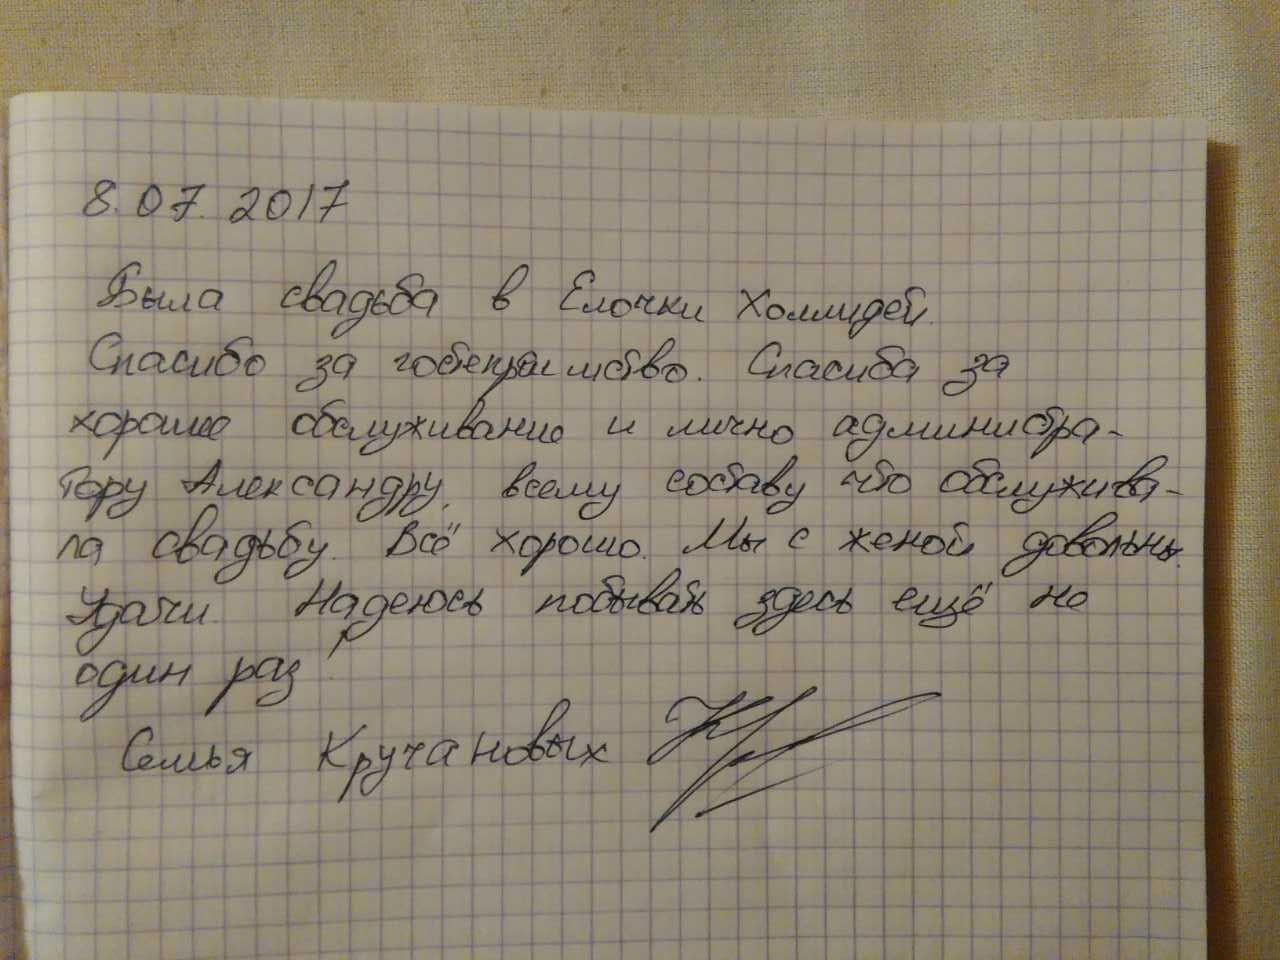 8.07.2017
Была свадьба в Елочки Холлидей.
Спасибо за гостеприимство. Спасиба за
хорошее обслуживание и лично администра-
тору Александру, всему составу что обслужива-
ла свадьбу. Всё хорошо. Мы с женой довольны.
Удачи. Надеюсь побывать здесь ещё не
один раз!
Семья Кручановых